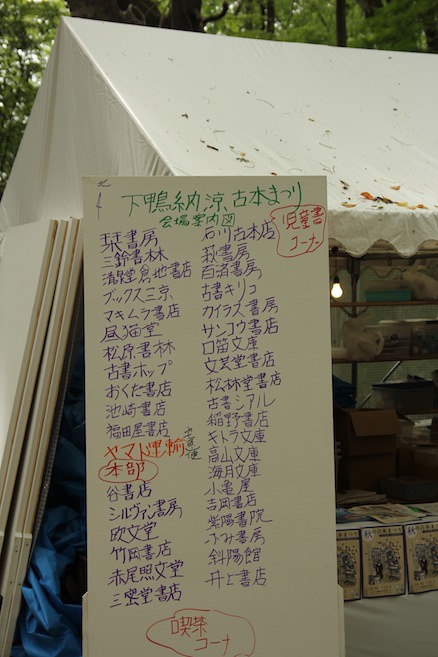 北
下鴨納涼古本まつり
会場案内図
児童書
コーナー
栞書房
三鈴書林
清泉堂倉地書店
ブックス三京
マキムラ書店
昼猫堂
松原書林
古書ホップ
おくだ書店
池崎書店
福田屋書店
ヤマト運輸
宅急便
本部
谷書店
シルヴァン書房
欧文堂
竹岡書店
赤尾照文堂
三密堂書店
石川古本店
萩書房
百済書房
古書キリコ
カイラス書房
サンコウ書店
口笛文庫
文芸堂書店
松林堂書店
古書シアル
稲野書店
キトラ文庫
高山文庫
海月文庫
小亀屋
吉岡書店
紫陽書院
ふみ書房
斜陽館
井上書店
喫茶
コーナー